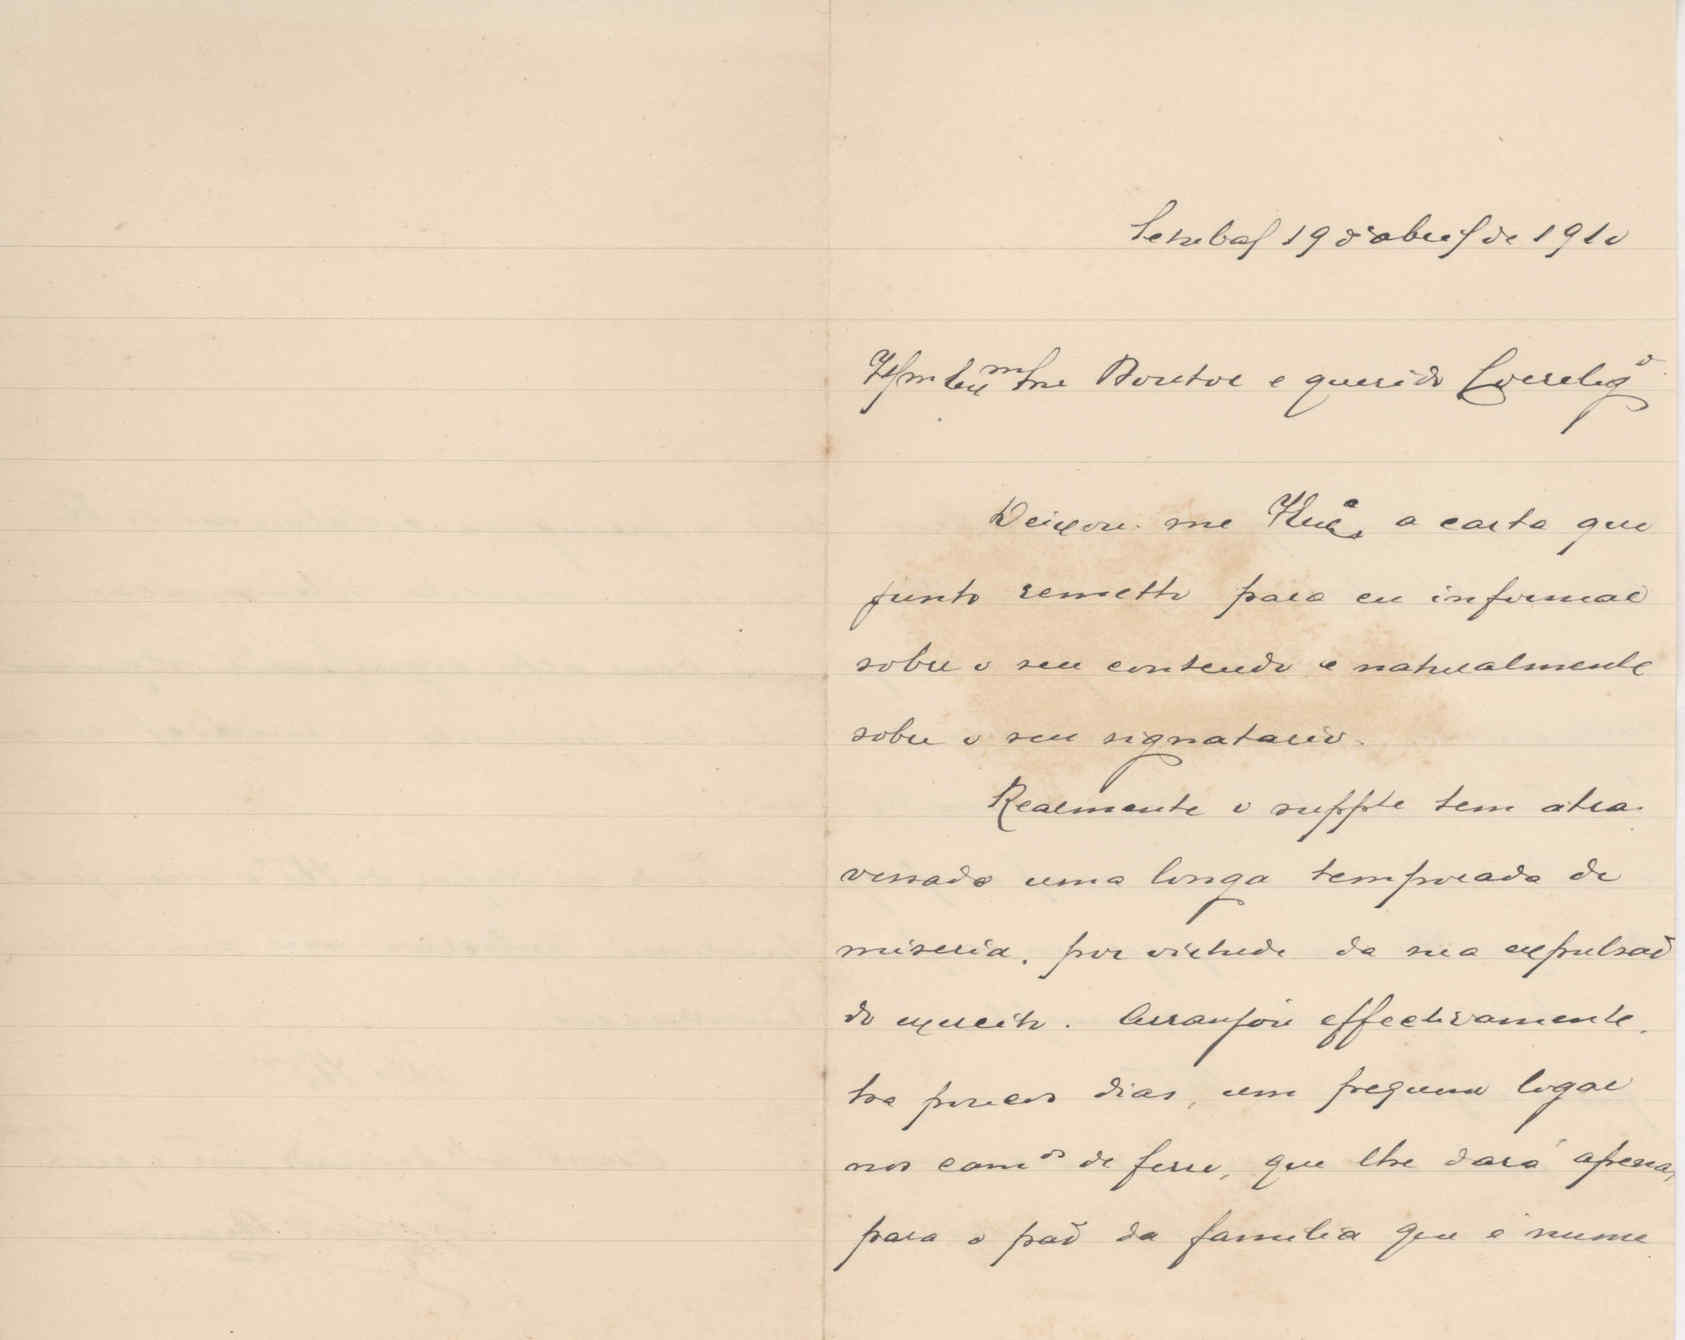 Setubal 19 d'abril de 1910
Illm Exm Snr Doutor e querido Correlig.º
Deixou-me V. Ex.ª a carta que
junto remetto para eu informar
sobre o seu conteudo e naturalmente
sobre o seu signatario.
Realmente o suppte tem atra-
vessado uma longa temporada de
miseria, por virtude da sua expulsaõ
do exercito. Arranjou effectivamente,
ha poucos dias, um pequeno logar
nos cam.os de ferro, que lhe dará apenas
para o paõ da familia que é nume